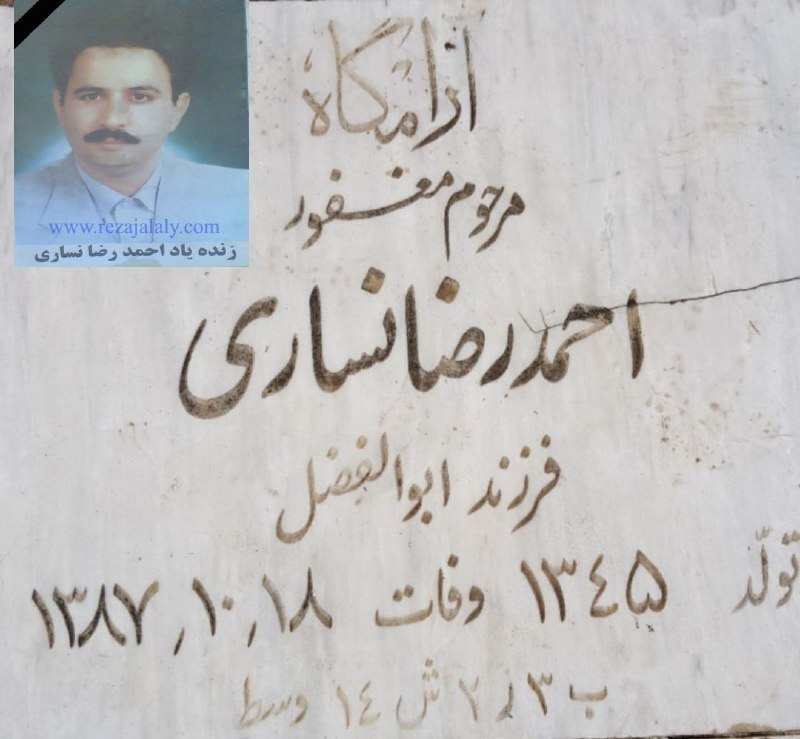 آرامگاه
مرحوم مغفور
احمد رضا نساری
فرزند ابوالفضل
تولّد ۱۳٤۵ وفات ۱۰٫۱۸٫ ۱۳۸۷
ب ۳ ر ۲ ش ۱٤ وسط
www.rezajalaly.com
زنده یاد احمد رضا نساری